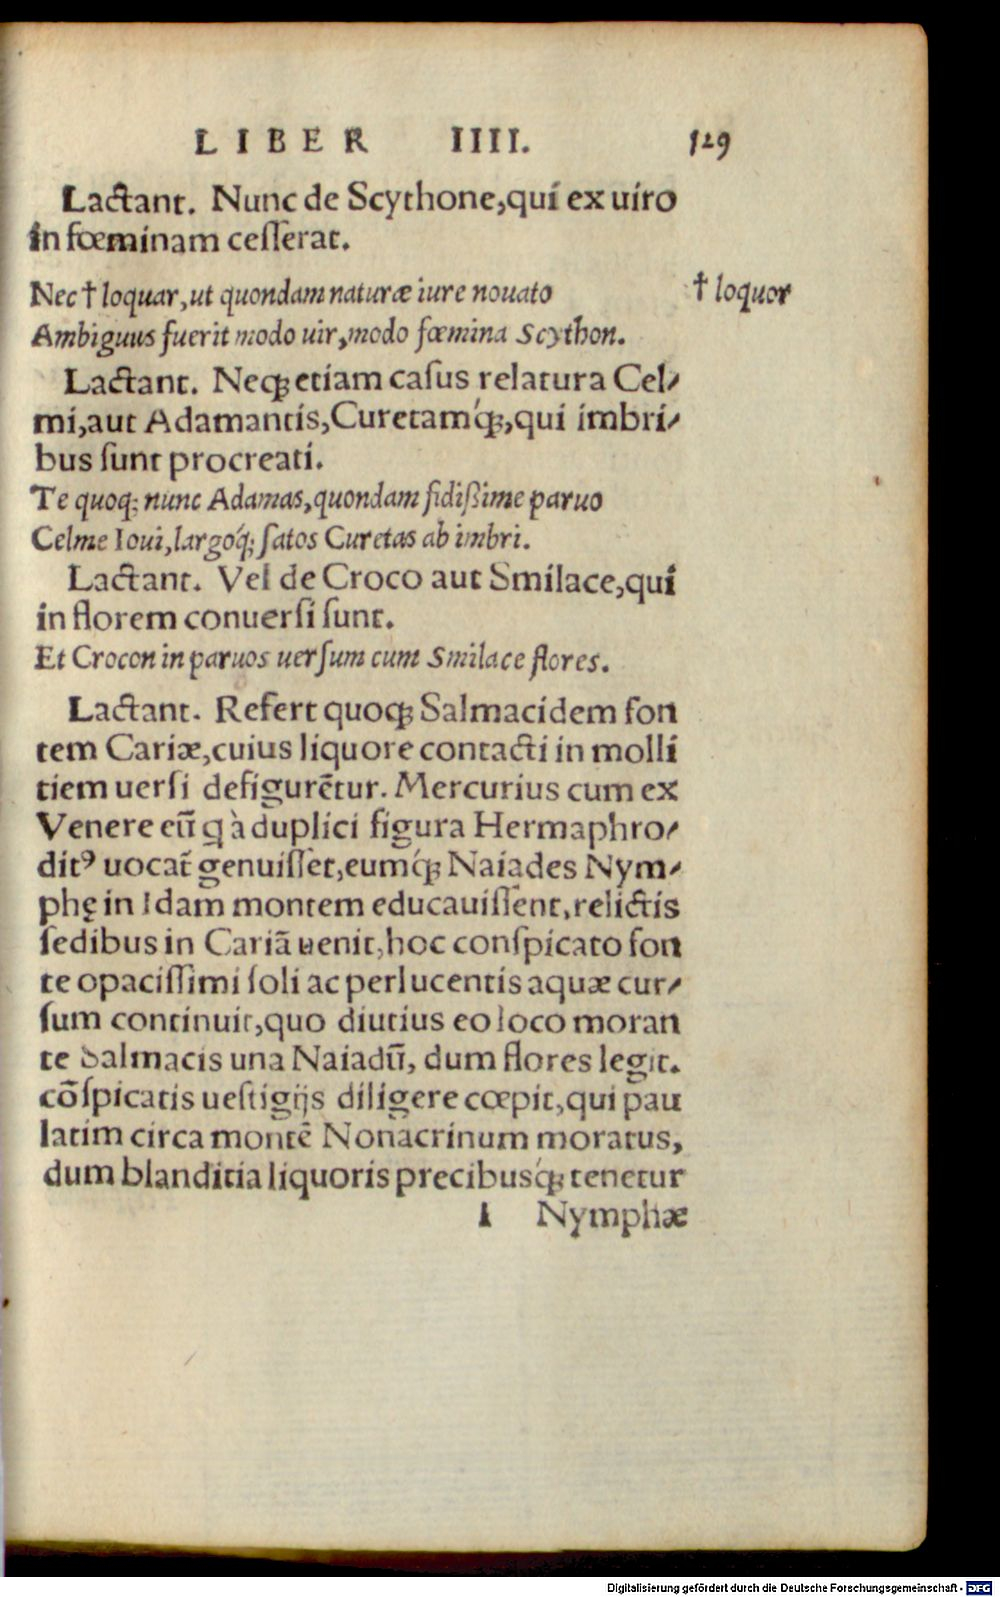 LIBER IIII. 129
Lactant. Nunc de Scythone,qui ex uiro
in fœminam ceſſerat.
Nec † loquar,ut quondam naturæ iure nouato
† loquor
Ambiguus fuerit modo uir,modo fœmina Scython.
Lactant. Neqꝫ etiam caſus relatura Cel⸗
mi,aut Adamantis,Curetamq́ꝫ,qui imbri⸗
bus ſunt procreati.
Te quoqꝫ nunc Adamas,quondam fidißime paruo
Celme Ioui,largoq́ꝫ ſatos Curetas ab imbri.
Lactant. Vel de Croco aut Smilace,qui
in florem conuerſi ſunt.
Et Crocon in paruos uerſum cum Smilace flores.
Lactant. Refert quoqꝫ Salmacidem fon
tem Cariæ,cuius liquore contacti in molli
tiem uerſi defigurẽtur. Mercurius cum ex
Venere eũ q à duplici figura Hermaphro⸗
ditꝰ uocat̃ genuiſſet,eumq́ꝫ Naiades Nym⸗
phę in Idam montem educauiſſent,relictis
ſedibus in Cariã uenit,hoc conſpicato fon
te opaciſſimi ſoli ac perlucentis aquæ cur⸗
ſum continuit,quo diutius eo loco moran
te Salmacis una Naiadũ, dum flores legit.
cõſpicatis ueſtigijs diligere cœpit,qui pau
latim circa montẽ Nonacrinum moratus,
dum blanditia liquoris precibusq́ꝫ tenetur
I Nymphæ
Digitalisierung gefördert durch die Deutsche Forschungsgemeinschaft - DFG